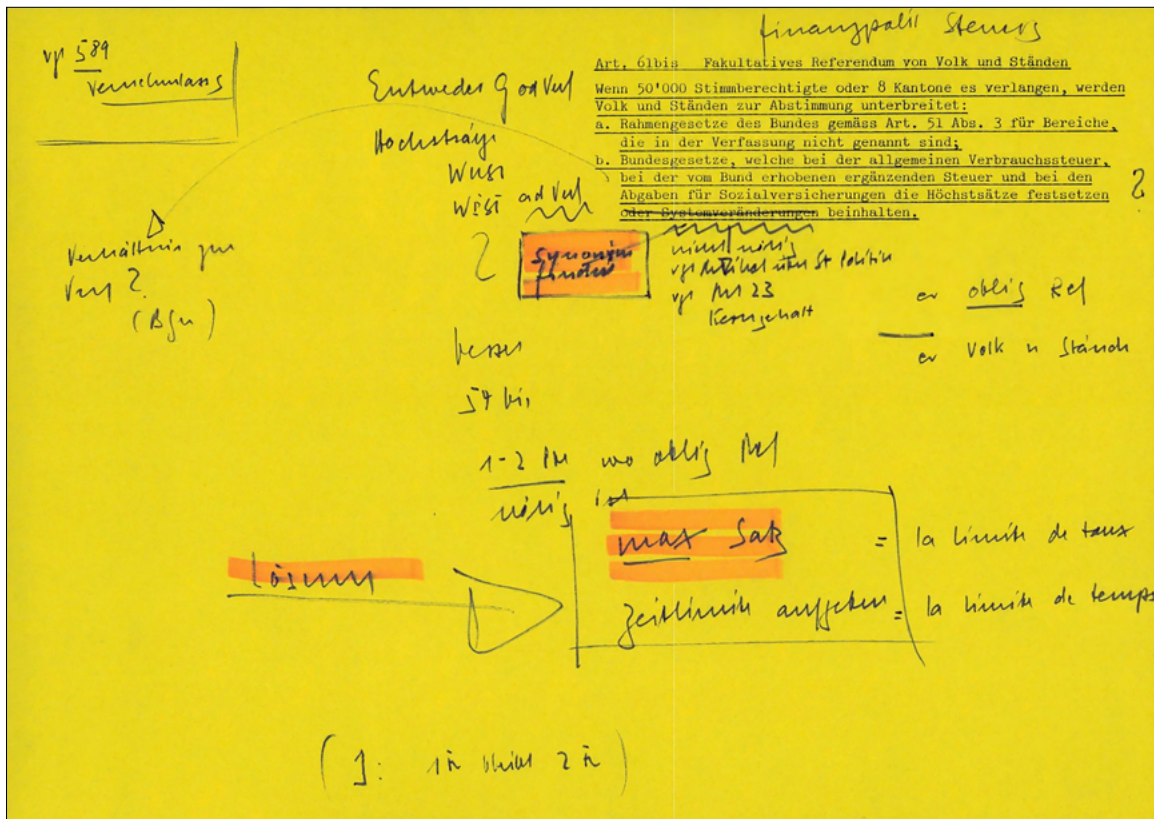 vgl 589
Vernehmlassg
finanzpolit Steuerg
Art. 61bis Fakultatives Referendum von Volk und Ständen
Wenn 50'000 Stimmberechtigte oder 8 Kantone es verlangen, werden
Volk und Ständen zur Abstimmung unterbreitet:
a. Rahmengesetze des Bundes gemäss Art. 51 Abs. 3 für Bereiche,
die in der Verfassung nicht genannt sind;
b. Bundesgesetze, welche bei der allgemeinen Verbrauchssteuer,
bei der vom Bund erhobenen ergänzenden Steuer und bei den
Abgaben für Sozialversicherungen die Höchstsätze festsetzen
oder Systemveränderungen beinhalten.
?
Entweder G od Verf
Wust
od Verf
?
Verhältnis zur
Verf ?
nicht nötig
vgl Artikel über St Politik
vgl Art 23
Kerngehalt
ev oblig Ref
ev Volk u Stände
besser
54 bis
1-2 wo oblig Ref
nötig ist
Lösung
max Satz = la limite de taux
Zeitlimite aufgeben = la limite de temps